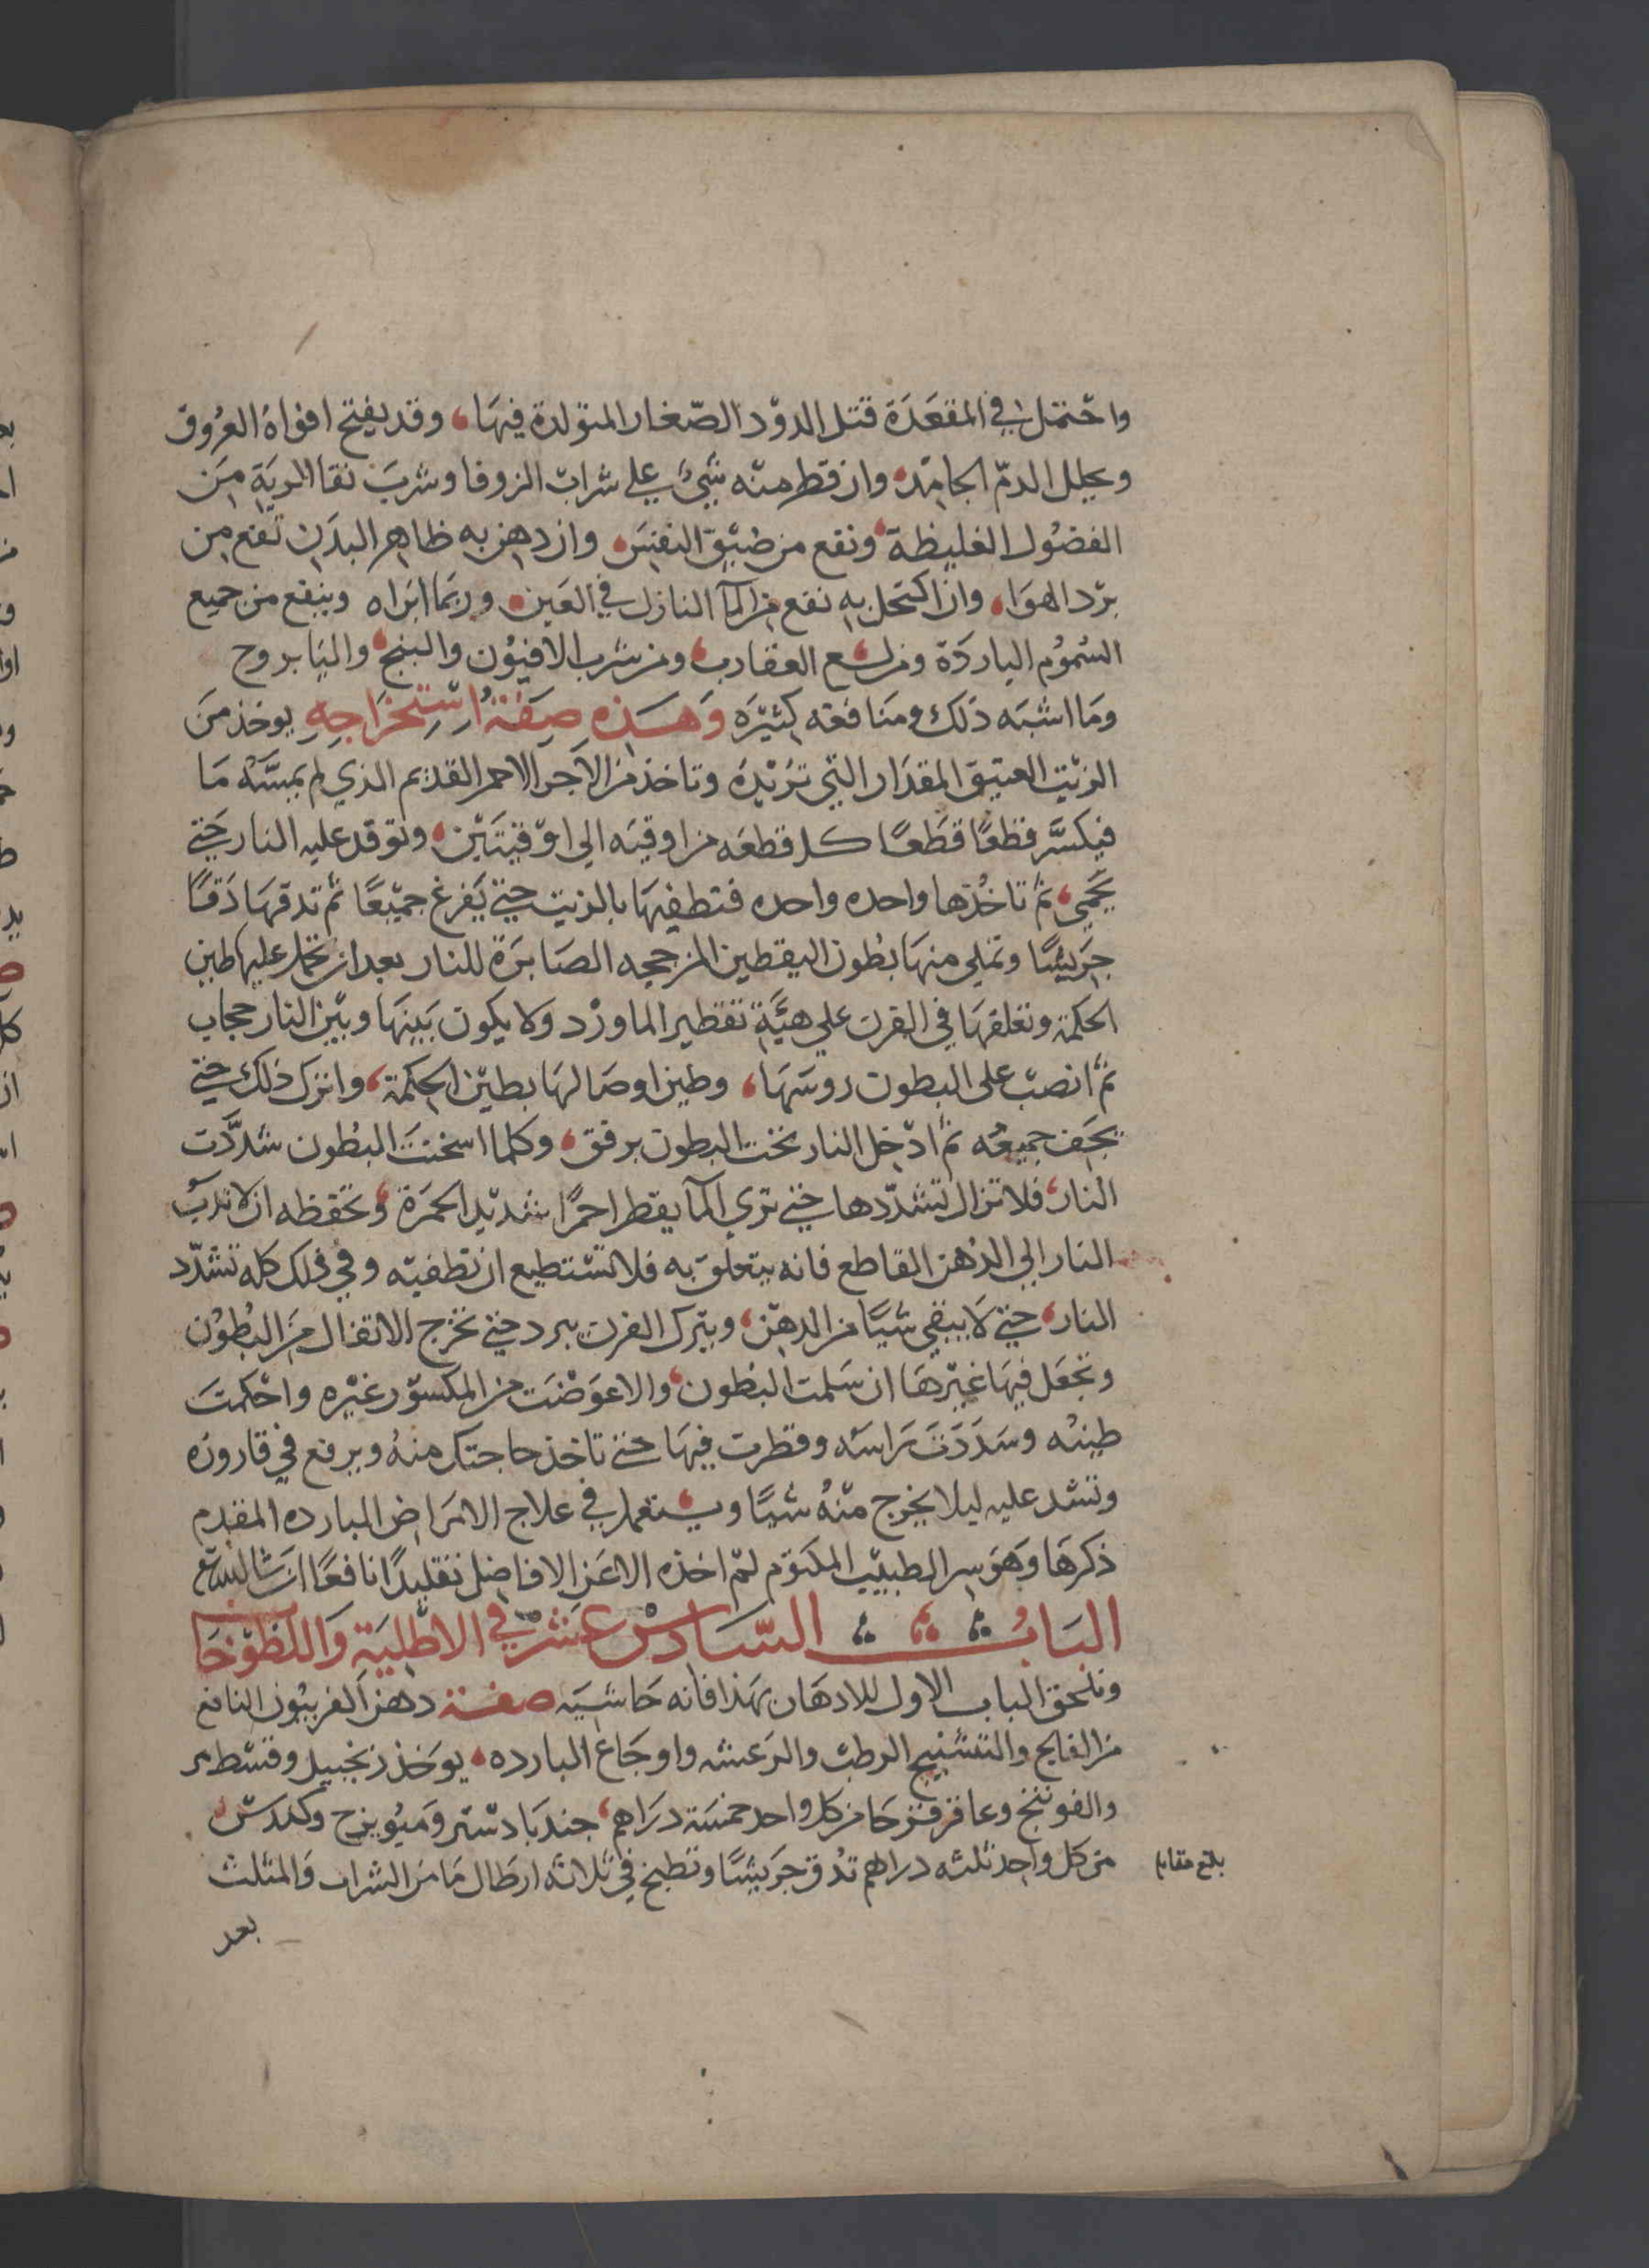 واحتمل في المقعدة قتل الدود الصغار المتولدة فيها، وقد يفتح افواه العروق
ويحلل الدم الجامد، وان قطر منه شيء علي شراب الزوفا وشرب نقا الرية من
الفضول الغليظة، ونفع من ضيق النفس، وان دهن به ظاهر البدن نفع من
برد الهوا، وان اكتحل به نفع من المآ النازل في العين، وربما ابراه وينفع من جميع
السموم الباردة ومن لسع العقارب، ومن شرب الافيون والبنج، واليابروح
وما اشبه ذلك ومنافعه كثيره وهذه صفة استخراجه يوخذ من
الزيت العتيق المقدار التي تريده وتاخذ من الاجر الاحمر القديم الذي لم يمسه ما
فيكسر قطعا قطعا كل قطعه من اوقيه الي اوقيتين، وتوقد عليه النار حتي
يحمي، ثم تاخذها واحده واحده فتطفيها بالزيت حتي يفرغ جميعا ثم تدقها دقا
جريشا وتملي منها بطون اليقطين المزججه الصابرة للنار بعد ان تحمل عليها طين
الحكمة وتعلقها في الفرن علي هيئة تقطير الماورد ولا يكون بينها وبين النار حجاب
ثم انصب علي البطون روسها، وطين اوصالها بطين الحكمة، واترك ذلك حتي
يجف جميعه ثم ادخل النار تحت البطون برفق، وكلما اسخنت البطون شددت
النار، فلا تزال تشددها حتي تري المآ يقطر احمرا شديد الحمرة، وتحفظه ان لا تدب
النار الي الدهن القاطع فانه يتعلق به فلا تستطيع ان تطفيه وفي ذلك كله تشدد
النار، حتي لا يبقي شيا من الدهن، ويترك الفرن يبرد حتي تخرج الاتفال من البطون
وتجعل فيها غيرها ان سلمت البطون، والا عوضت من المكسور غيره واحكمت
طينه وسددت راسه وقطرت فيها حتي تاخذ حاجتك منه ويرفع في قاروره
وتشد عليه ليلا يخرج منه شيا ويستعمل في علاج الامراض البارده المقدم
ذكرها وهو سر الطبيب المكتوم لم اخذه الا عن الافاضل تقليدا نافعا ان شا الله تع
الباب السادس عشر في الاطلية واللطوخا
ونلحق الباب الاول للادهان بهذا فانه حاشيه صفة دهن الفربيون النافع
من الفالج والتشنيج الرطب والرعشه واوجاع البارده، يوخذ زنجبيل وقسط مر
والفوتنج وعاقرقرحا من كل واحد خمسة دراهم، جندبادستر وميويزج وكندس
من كل واحد ثلثه دراهم تدق جريشا وتطبخ في ثلاثه ارطال ما من الشراب والمثلث
بلغ مقابله
بعد